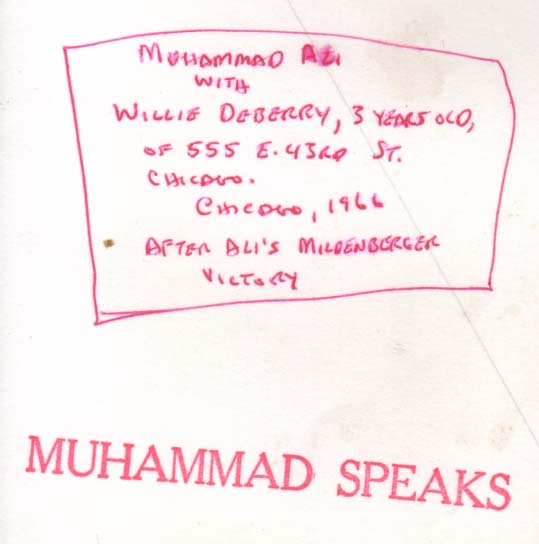 MUHAMMAD ALI
WITH
WILLIE DEBERRY, 3 YEARS OLD,
OF 555 E. 43RD ST.
CHICAGO.
CHICAGO, 1966
AFTER ALI'S MILDENBERGER
VICTORY
MUHAMMAD SPEAKS